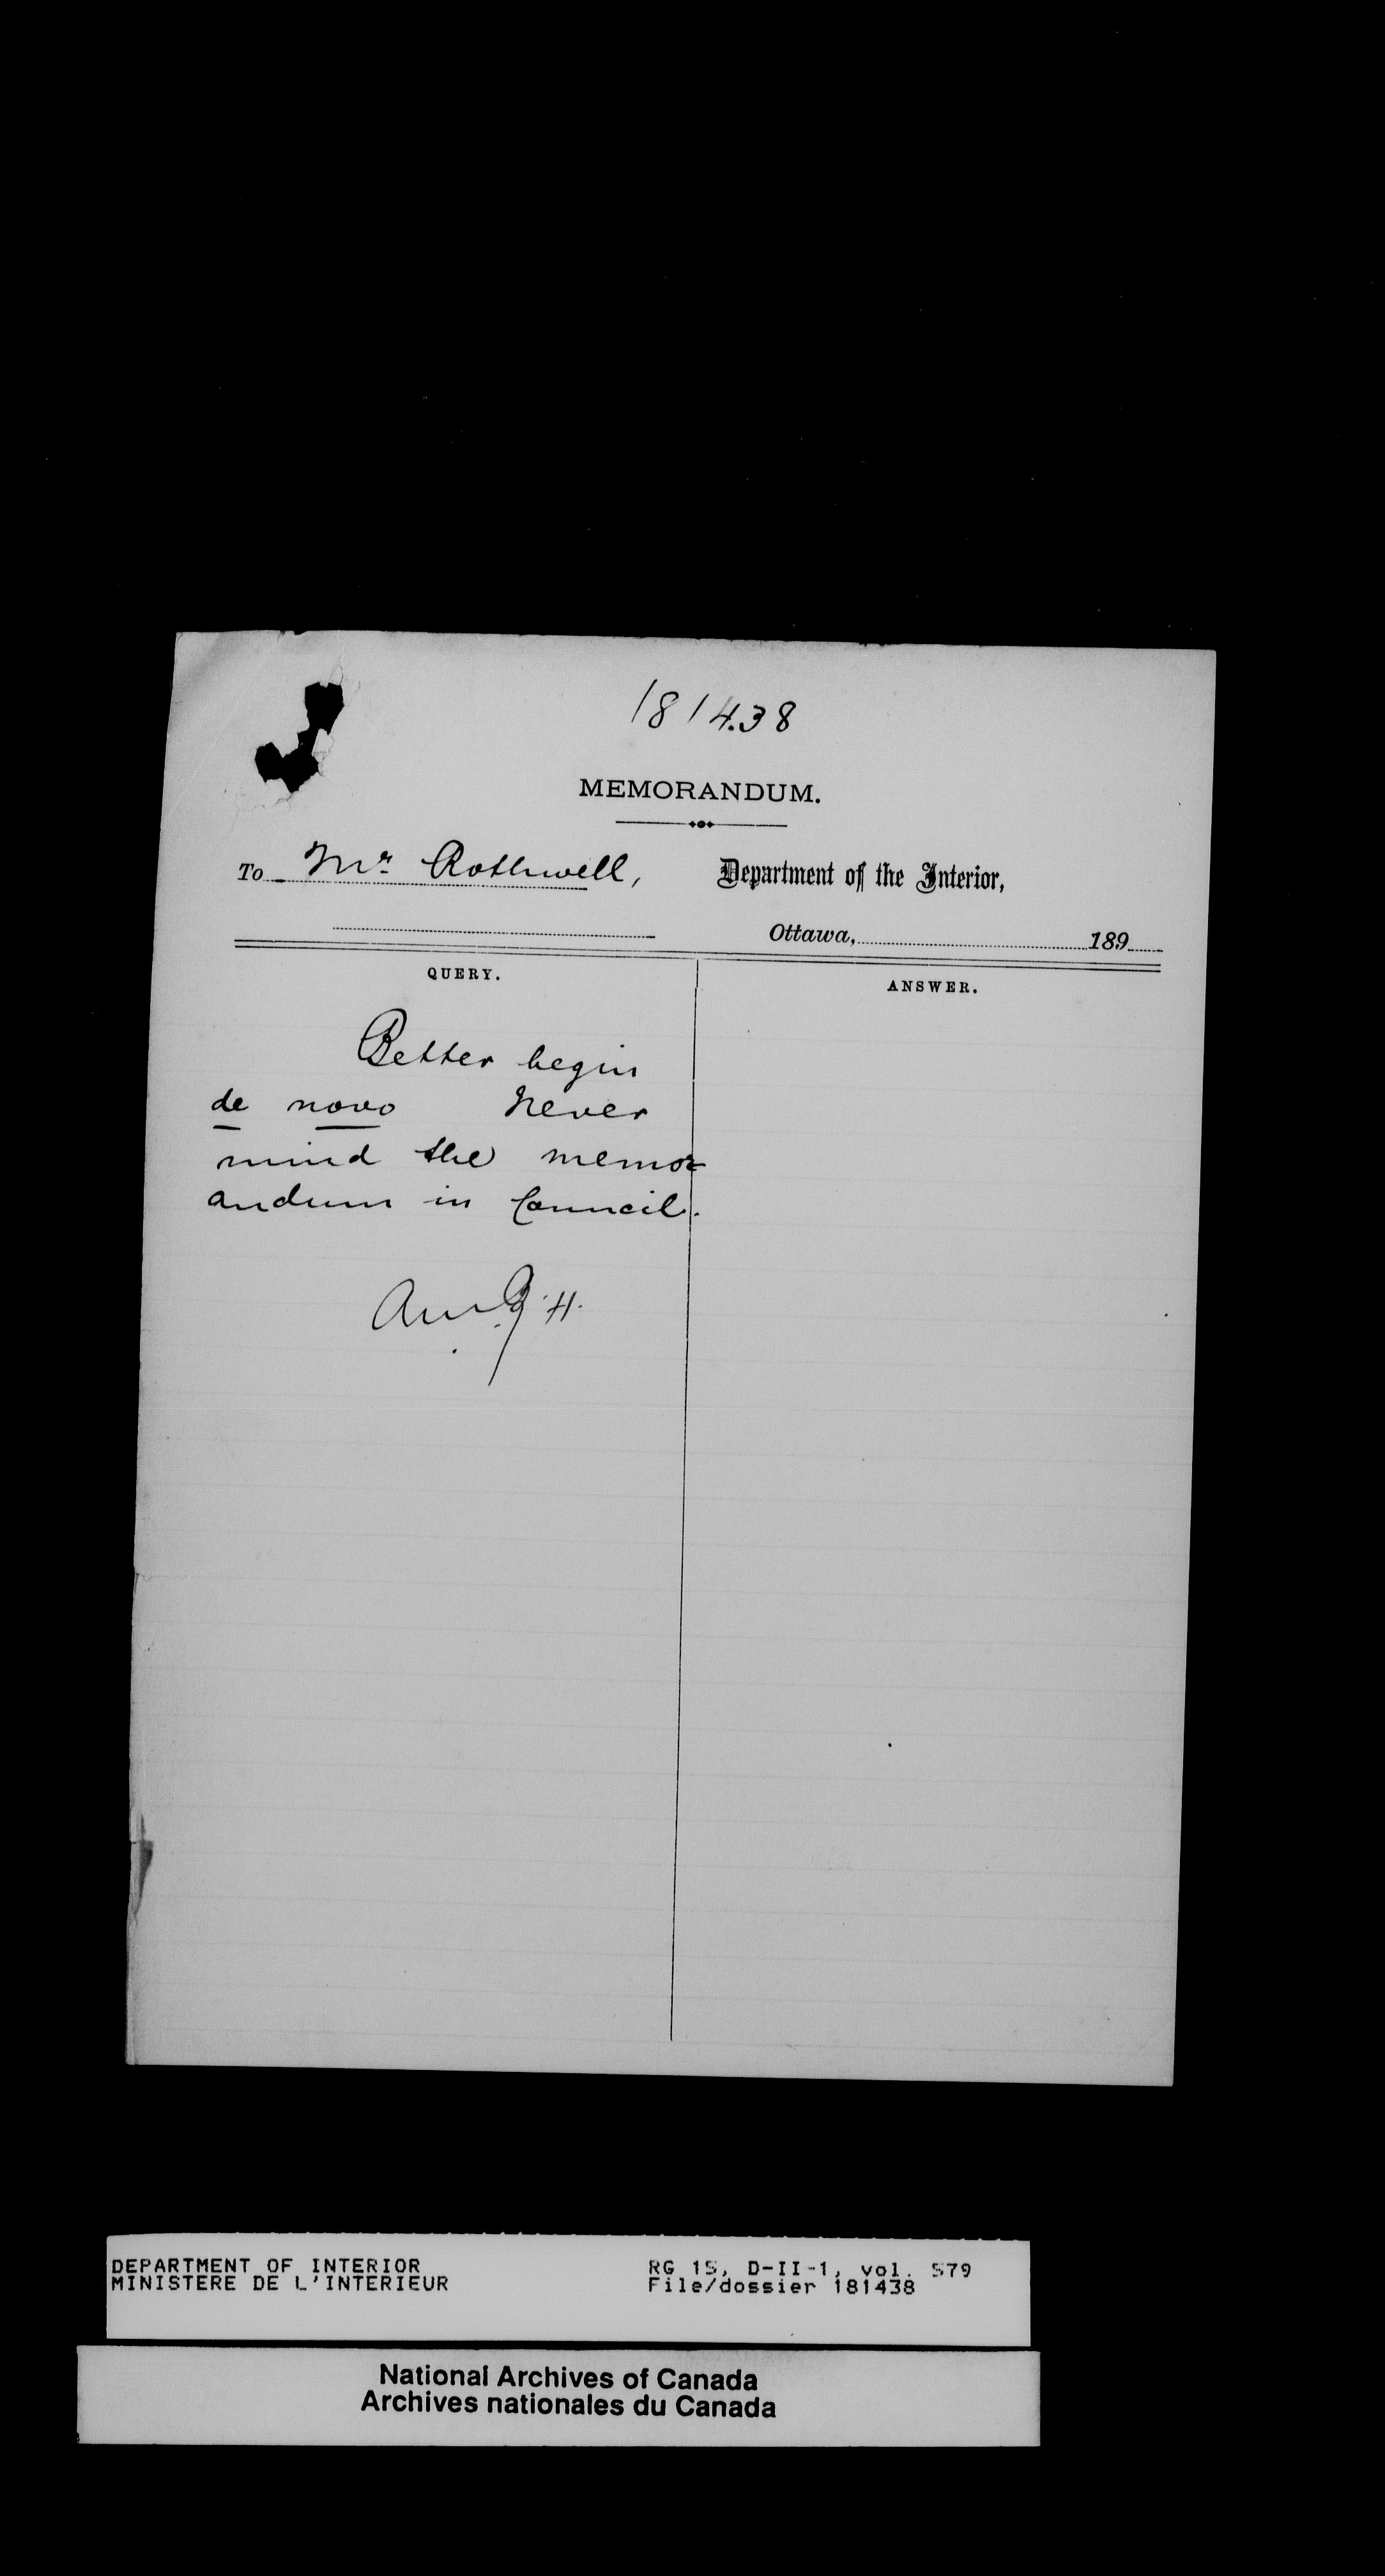 181438
MEMORANDUM.
To Mr Rothwell, Department of the Interior,
Ottawa, 189
QUERY. ANSWER.
Better begin
de novo Never
mind the memor
andum in Council.
DEPARTMENT OF INTERIOR
MINISTERE DE L'INTERIEUR
RG 15, D-II-1, vol. 579
File/dossier 181438
National Archives of Canada
Archives nationales du Canada